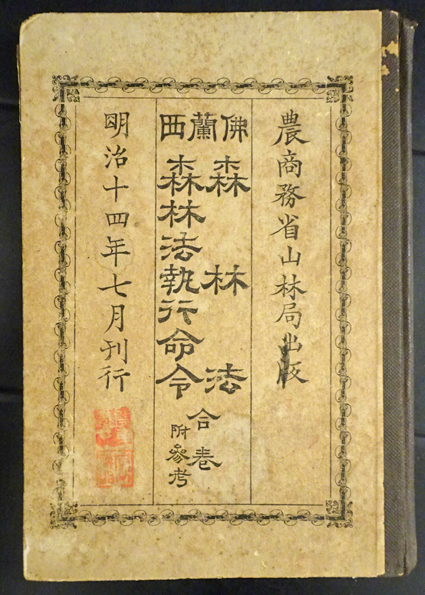 農商務省山林局出版
佛蘭西
森林法
森林法執行命令
合巻
附參考
明治十四年七月刊行